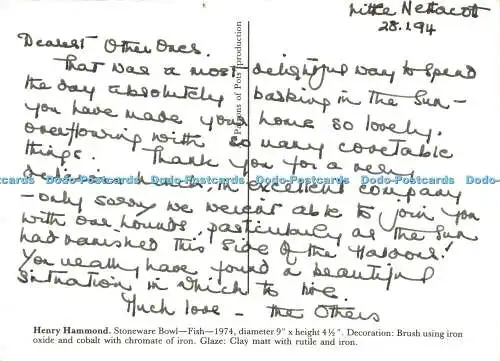 Little Nettacot
28.1.94
Dearest Other Ones.
That was a most delightful way to spend
the day absolutely basking in the sun -
you have made your home so lovely,
overflowing with so many covetable
things. Thank you for a very
lunch, in excellent company
- only sorry we weren't able to join you
with our hounds, particularly as the sun
had vanished this side of the Haldons!
You really have found a beautiful
situation in which to live.
Much love - the Others
A Pains of Pots production
Dodo-Postcards Dodo-Postcards Dodo-Postcards Dodo-Postcards Dodo-Postcards
Henry Hammond. Stoneware Bowl—Fish—1974, diameter 9" x height 4½". Decoration: Brush using iron
oxide and cobalt with chromate of iron. Glaze: Clay matt with rutile and iron.